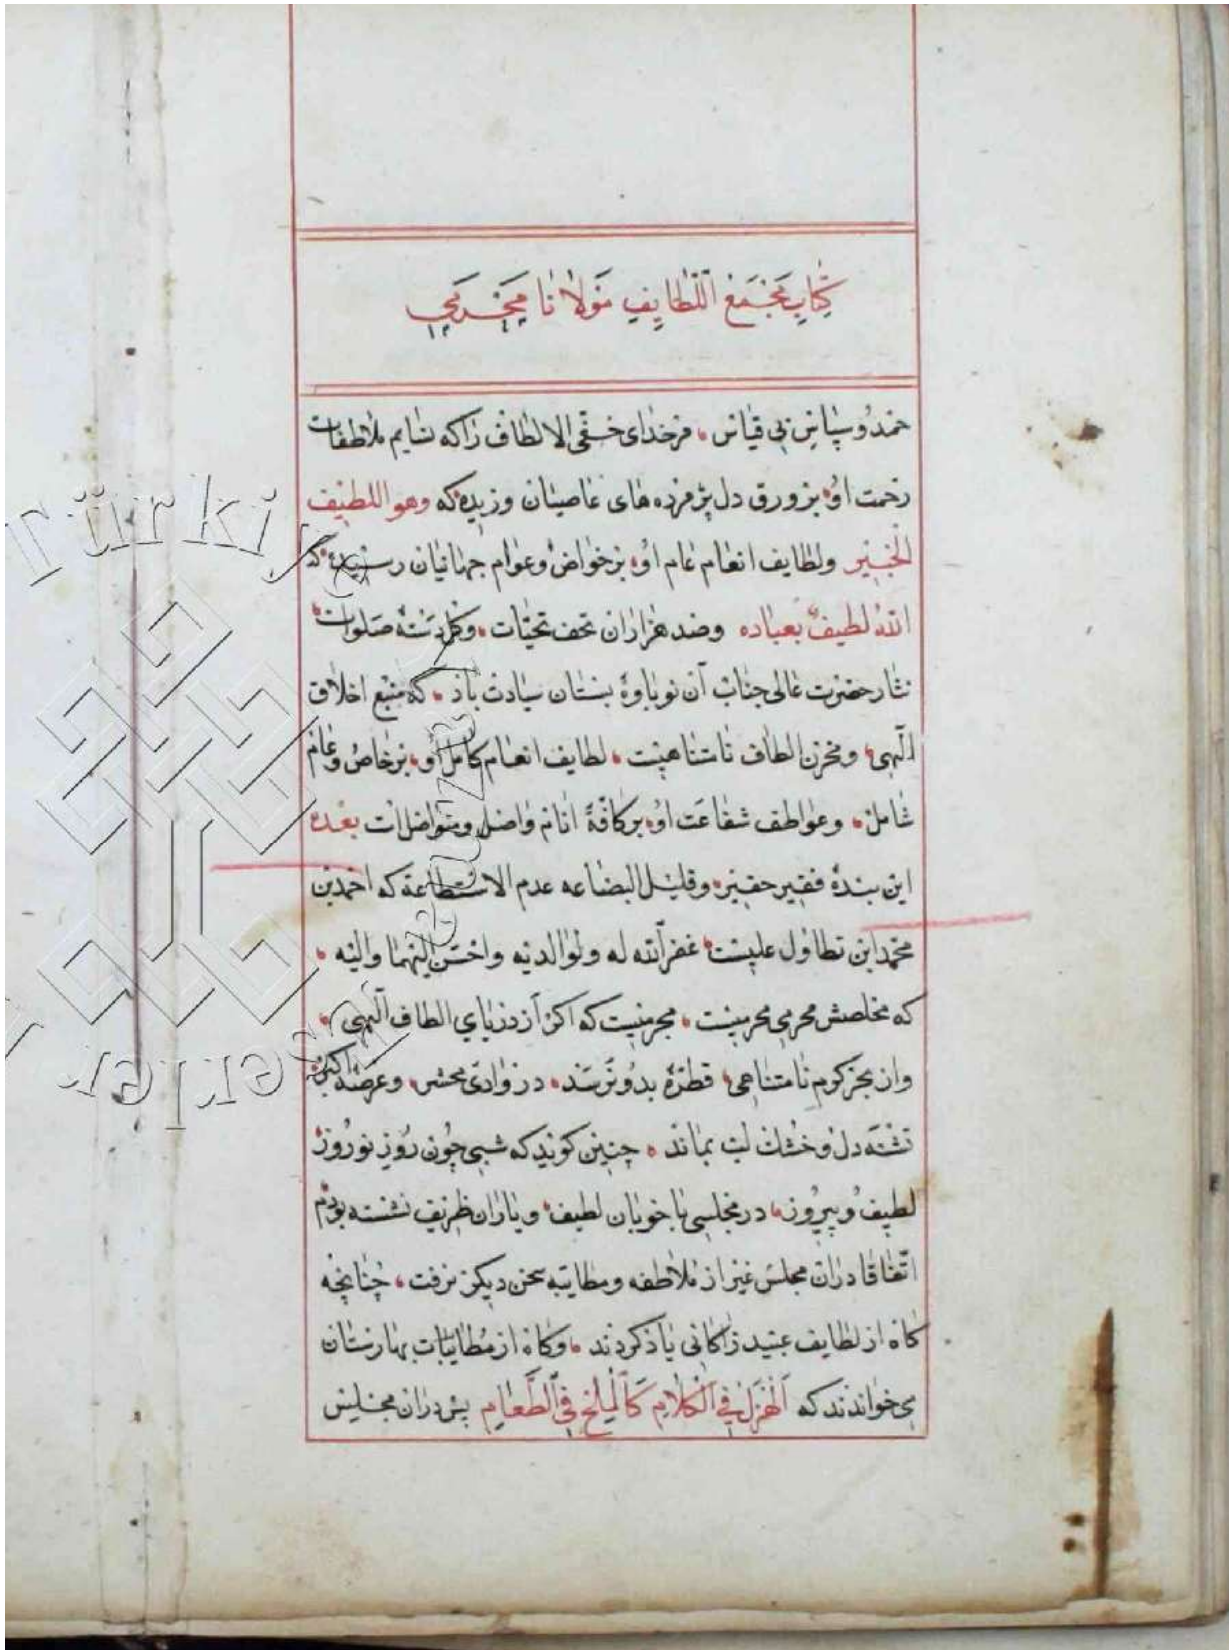 كتاب مجمع اللطايف مولانا محرمي
حمد و سپاس بی قیاس، مر خدای خفی الالطاف را که نسایم ملاطفات
رحمت او، بر ورق دل پژمرده های عاصیان وزیده که وهو اللطیف
الخبیر ولطایف انعام عام او، بر خواص وعوام جهانیان رسیده که
الله لطیف بعباده وصد هزاران تحف تحیات، وگلدسته صلوات
نثار حضرت عالی جناب آن نوباوهٔ بستان سیادت باد، که منبع اخلاق
الهی، ومخزن الطاف نامتناهیست، لطایف انعام کامل او، بر خاص وعام
شامل، وعواطف شفاعت او، بر کافهٔ انام واصل ومتواصل است بعده
این بندهٔ فقیر حقیر، وقلیل البضاعه عدم الاستطاعة که احمد بن
محمد ابن تطاول علیست، غفر الله له ولوالدیه واحسن الیهما والیه،
که مخلصش محرمی محرمیست، مجرمیست که اکر از دریای الطاف الهی،
واز بحر کرم نامتناهی، قطرهٔ بدو نرسد، در وادی محشر، وعرصهٔ اکبر،
تشنه دل وخشك لب بماند، چنین کوید که شبی چون روز نوروز،
لطیف و پیروز، در مجلسی با خوبان لطیف، ویاران ظریف نشسته بودم
اتفاقا دران مجلس غیر از ملاطفه ومطایبه سخن دیکر نرفت، چنانچه
کاه از لطایف عبید زاکانی یاد کردند، وکاه از مطایبات بهارستان
می خواندند که الهزل فی الکلام کالملح فی الطعام پس دران مجلس
Türkiye